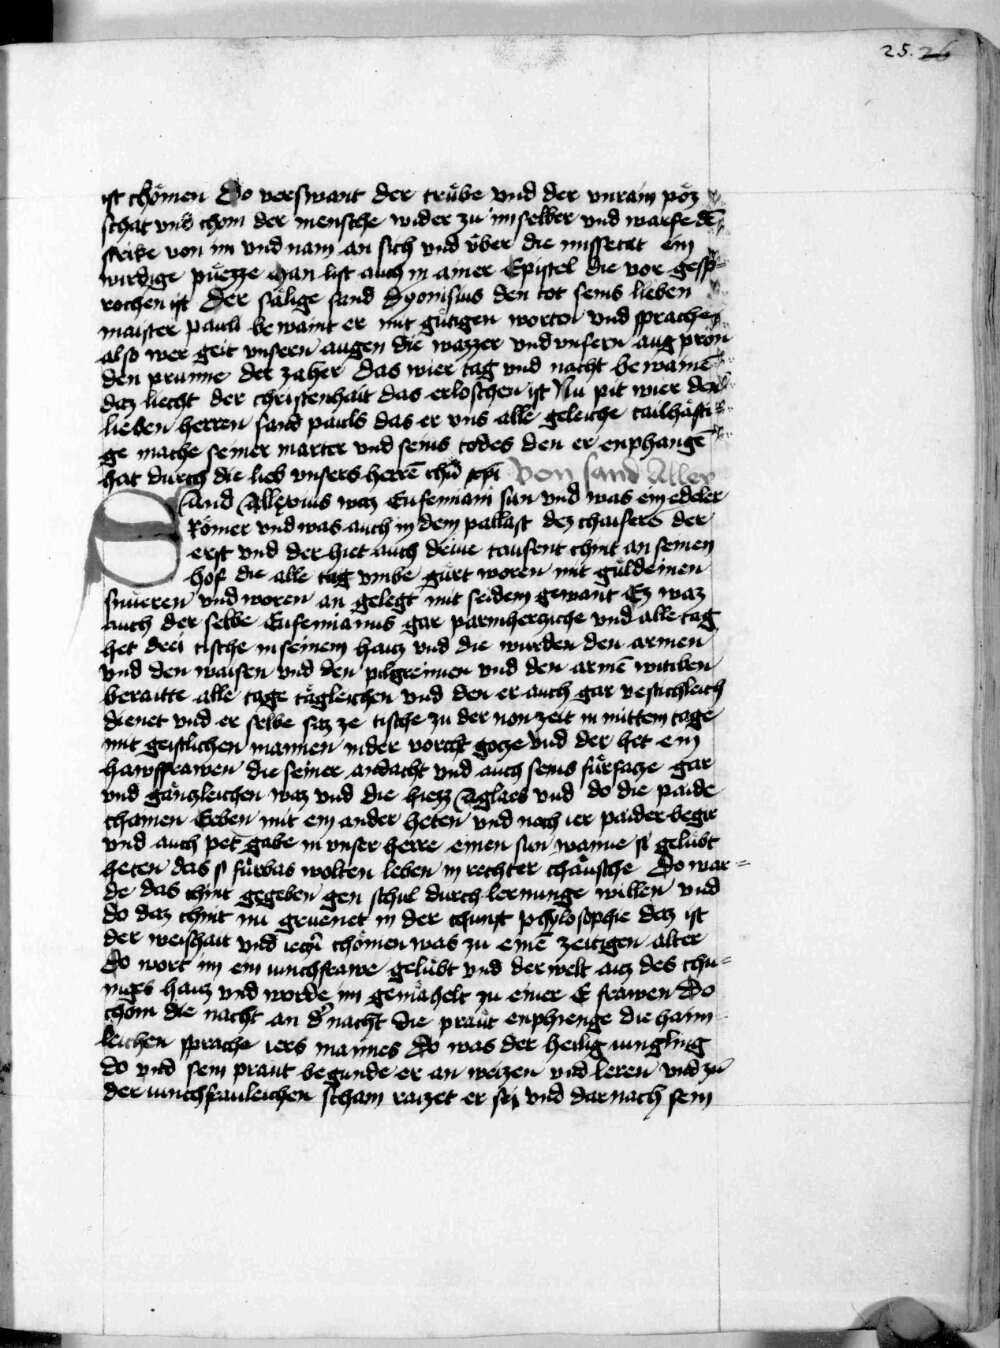 25. 26
ist chömen Do verswant der trübe vnd der vnrain pöz
schat vnd chom der mensche wider zu im selber vnd warfe dē
strike von im vnd nam an sich vnd über die missetat ein
wirdige püezze Man list auch in ainer Epistel die vor gesp-
rochen ist Der sälige sand Dyonisius den tot seins lieben
maister pauli bewaint er mit gütigen worten vnd sprache
also wer geit vnsern augen die wazzer vnd vnsern aug pron
den prunne der zaher Das wier tag vnd nacht bewainē
daz liecht der christenhait das erloschen ist Nu pit wier den
lieben herren sand pauls das er vns alle geleiche tailhäfti
ge mache seiner marter vnd seins todes den er enphangē
hat durch die lieb vnsers herrē Von sand Allex
Sand Allexius waz Eufemiani sun vnd was ein edeler
Römer vnd was auch in dem pallast dez chaiserē der
erst vnd der hiet auch dreiie tausent chint an seinen
hof die alle tag vmbe gürt woren mit güldeinen
snüeren vnd woren an gelegt mit seidem gewant Ez waz
auch der selbe Eufemianus gar parmherziche vnd alle tag
het drei tische in seinem hauz vnd die wurden den armen
vnd den waisen vnd den pilgreimen vnd den armē witiben
beraitte alle tage tägleichen vnd den er auch gar vestichleich
dienet vnd er selbe saz ze tische zu der non zeit in mittem tage
mit geistlichen mannen in der vorcht gotze vnd der het ein
hawsfrawen die seiner andacht vnd auch seins fürsatze gar
vnd gänzleichen waz vnd die hiezz Aglaes vnd do die paide
chamen Leben mit ein ander heten vnd noch ier paider begir
vnd auch pet gabe in vnser herre einen sun wanne si gelübt
heten das si fürbas wolten leben in rechter chäusche Do war-
de das chint gegeben gen schul durch lernunge willen vnd
do daz chint nu geuenet in der chunst phylosophie daz ist
der weishait vnd chömen was zu einē zeitigen alter
Do wort im ein iunchfrawe gelübt vnd der welt auz des chu-
niges hauz vnd worde im gemähelt zu einer E frawen Do
chom die nacht an d' nacht die praut enphienge die haim
leichen sprache iers mannes Do was der heilig iungling
do vnd sein praut begunde er an weizen vnd leren vnd zu
der iunchfrauleichen scham raizet er sei vnd dar nach sein